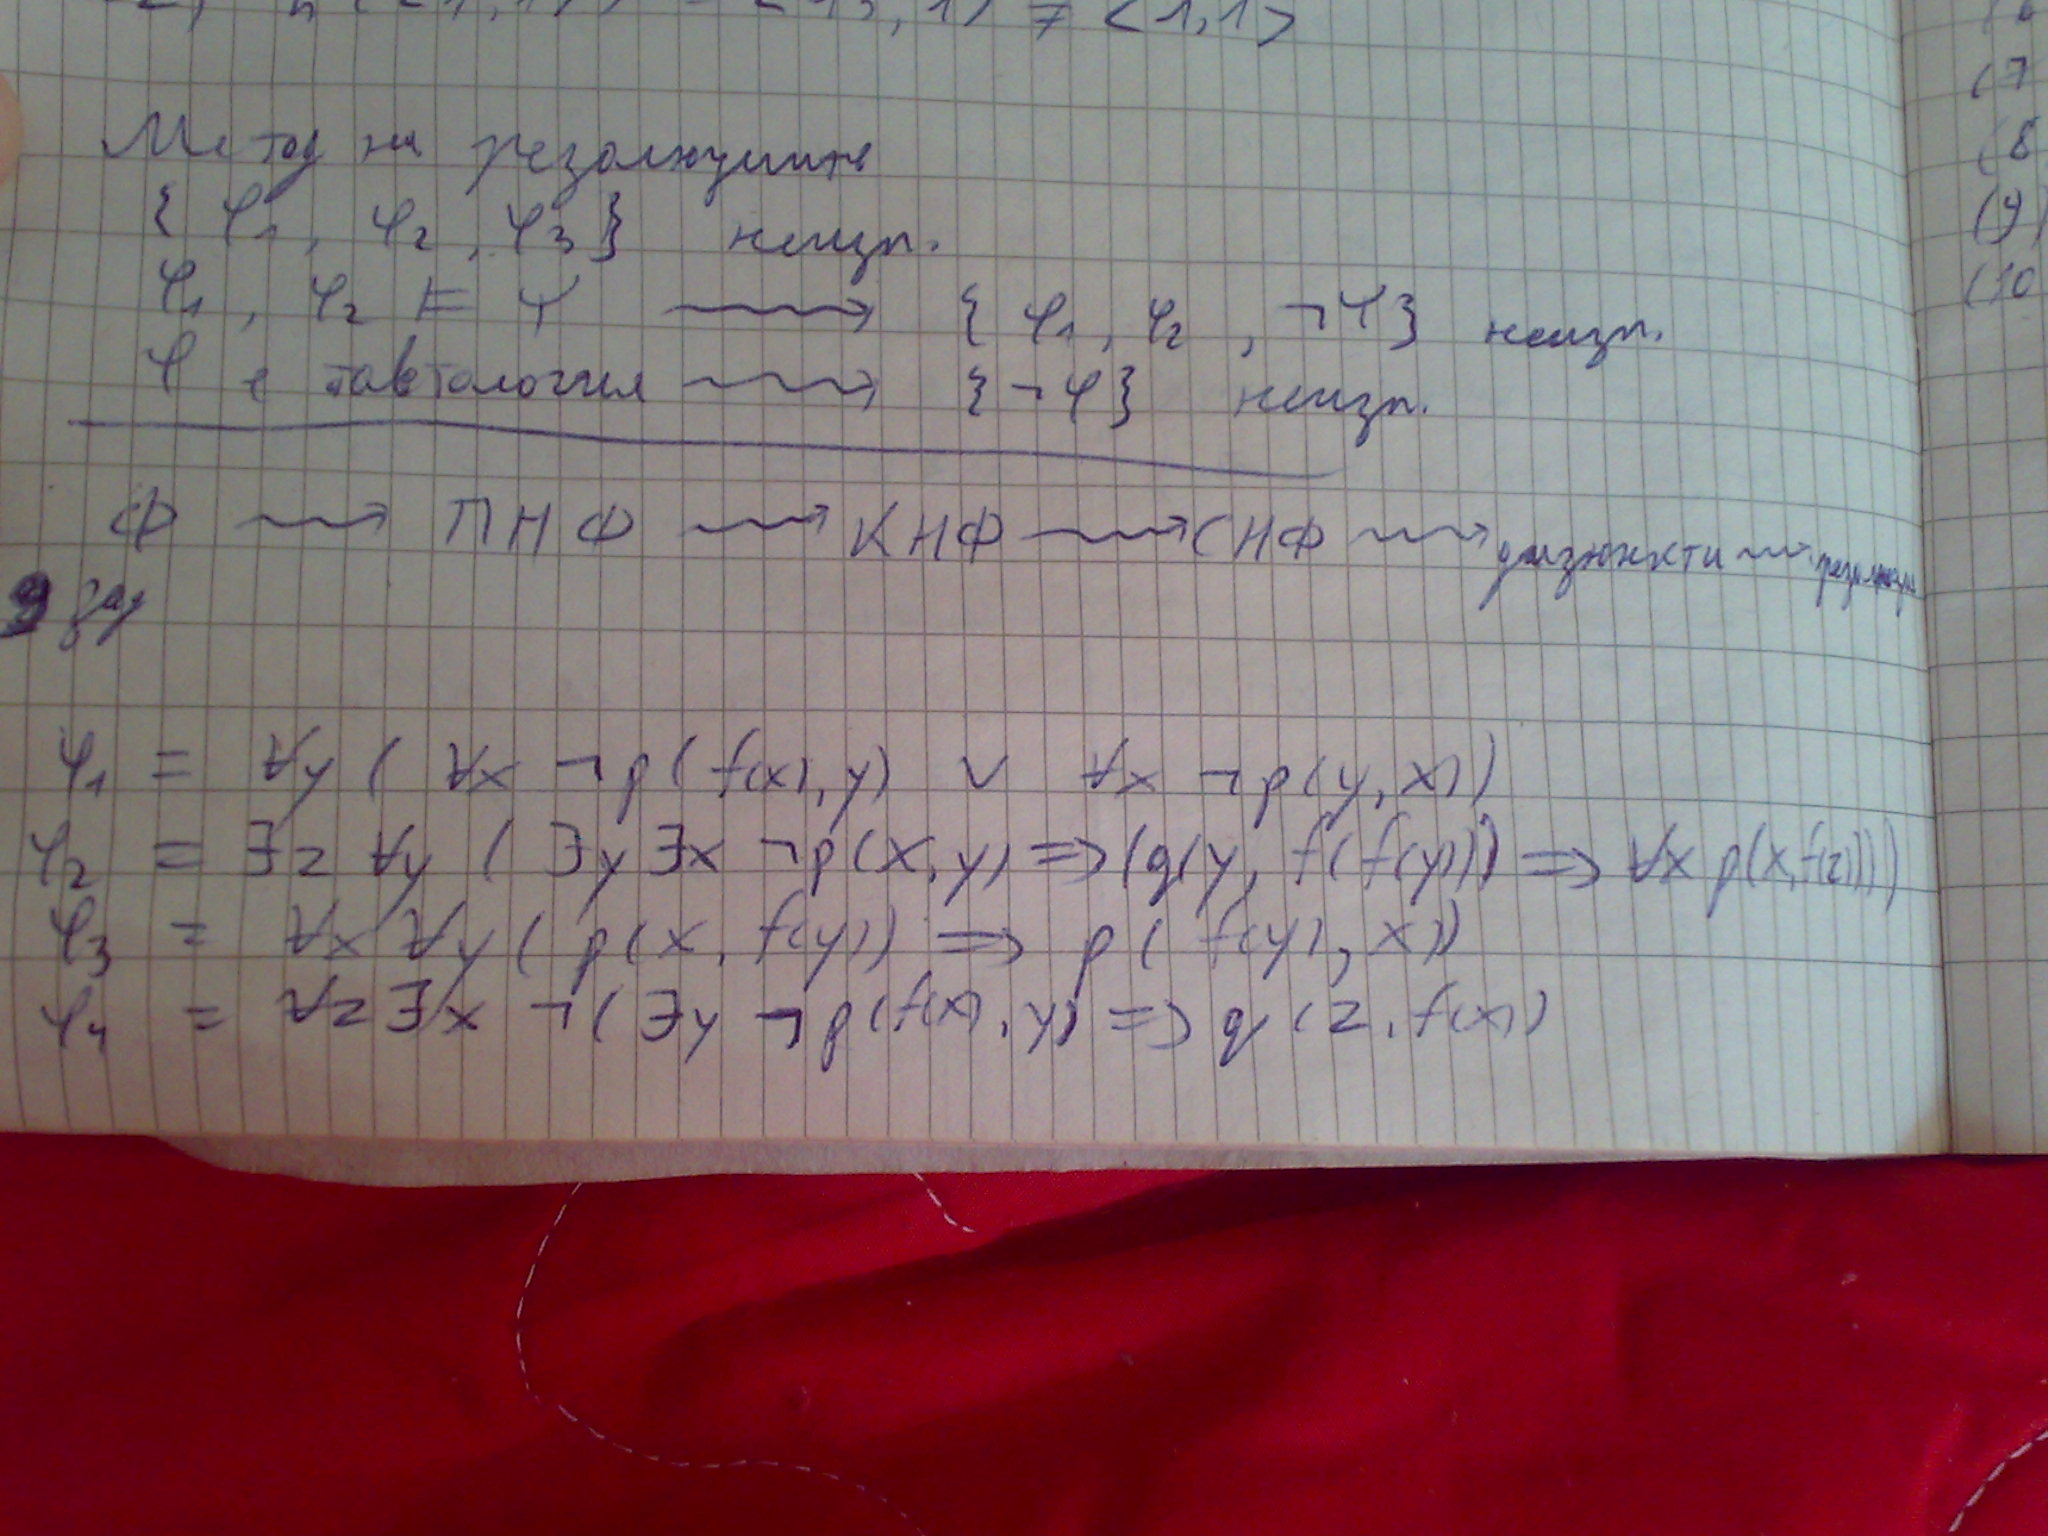 Метод на резолюцията
{ φ1 , φ2 , φ3 } неизп.
φ1 , φ2 ⊨ Ψ ⟿ { φ1 , φ2 , ¬Ψ } неизп.
φ е тавтология ⟿ { ¬φ } неизп.
Ф ⟿ ПНФ ⟿ КНФ ⟿ СНФ ⟿ дизюнкти ⟿
9 зад
φ1 = ∀y ( ∀x ¬p( f(x), y) ∨ ∀x ¬p(y, x))
φ2 = ∃z ∀y ( ∃y ∃x ¬p(x, y) => (q(y, f(f(y))) => ∀x p(x, f(z))))
φ3 = ∀x ∀y ( p(x, f(y)) => p( f(y), x))
φ4 = ∀z ∃x ¬( ∃y ¬p(f(x), y) => q(z, f(x))
(7
(8
(9)
(10